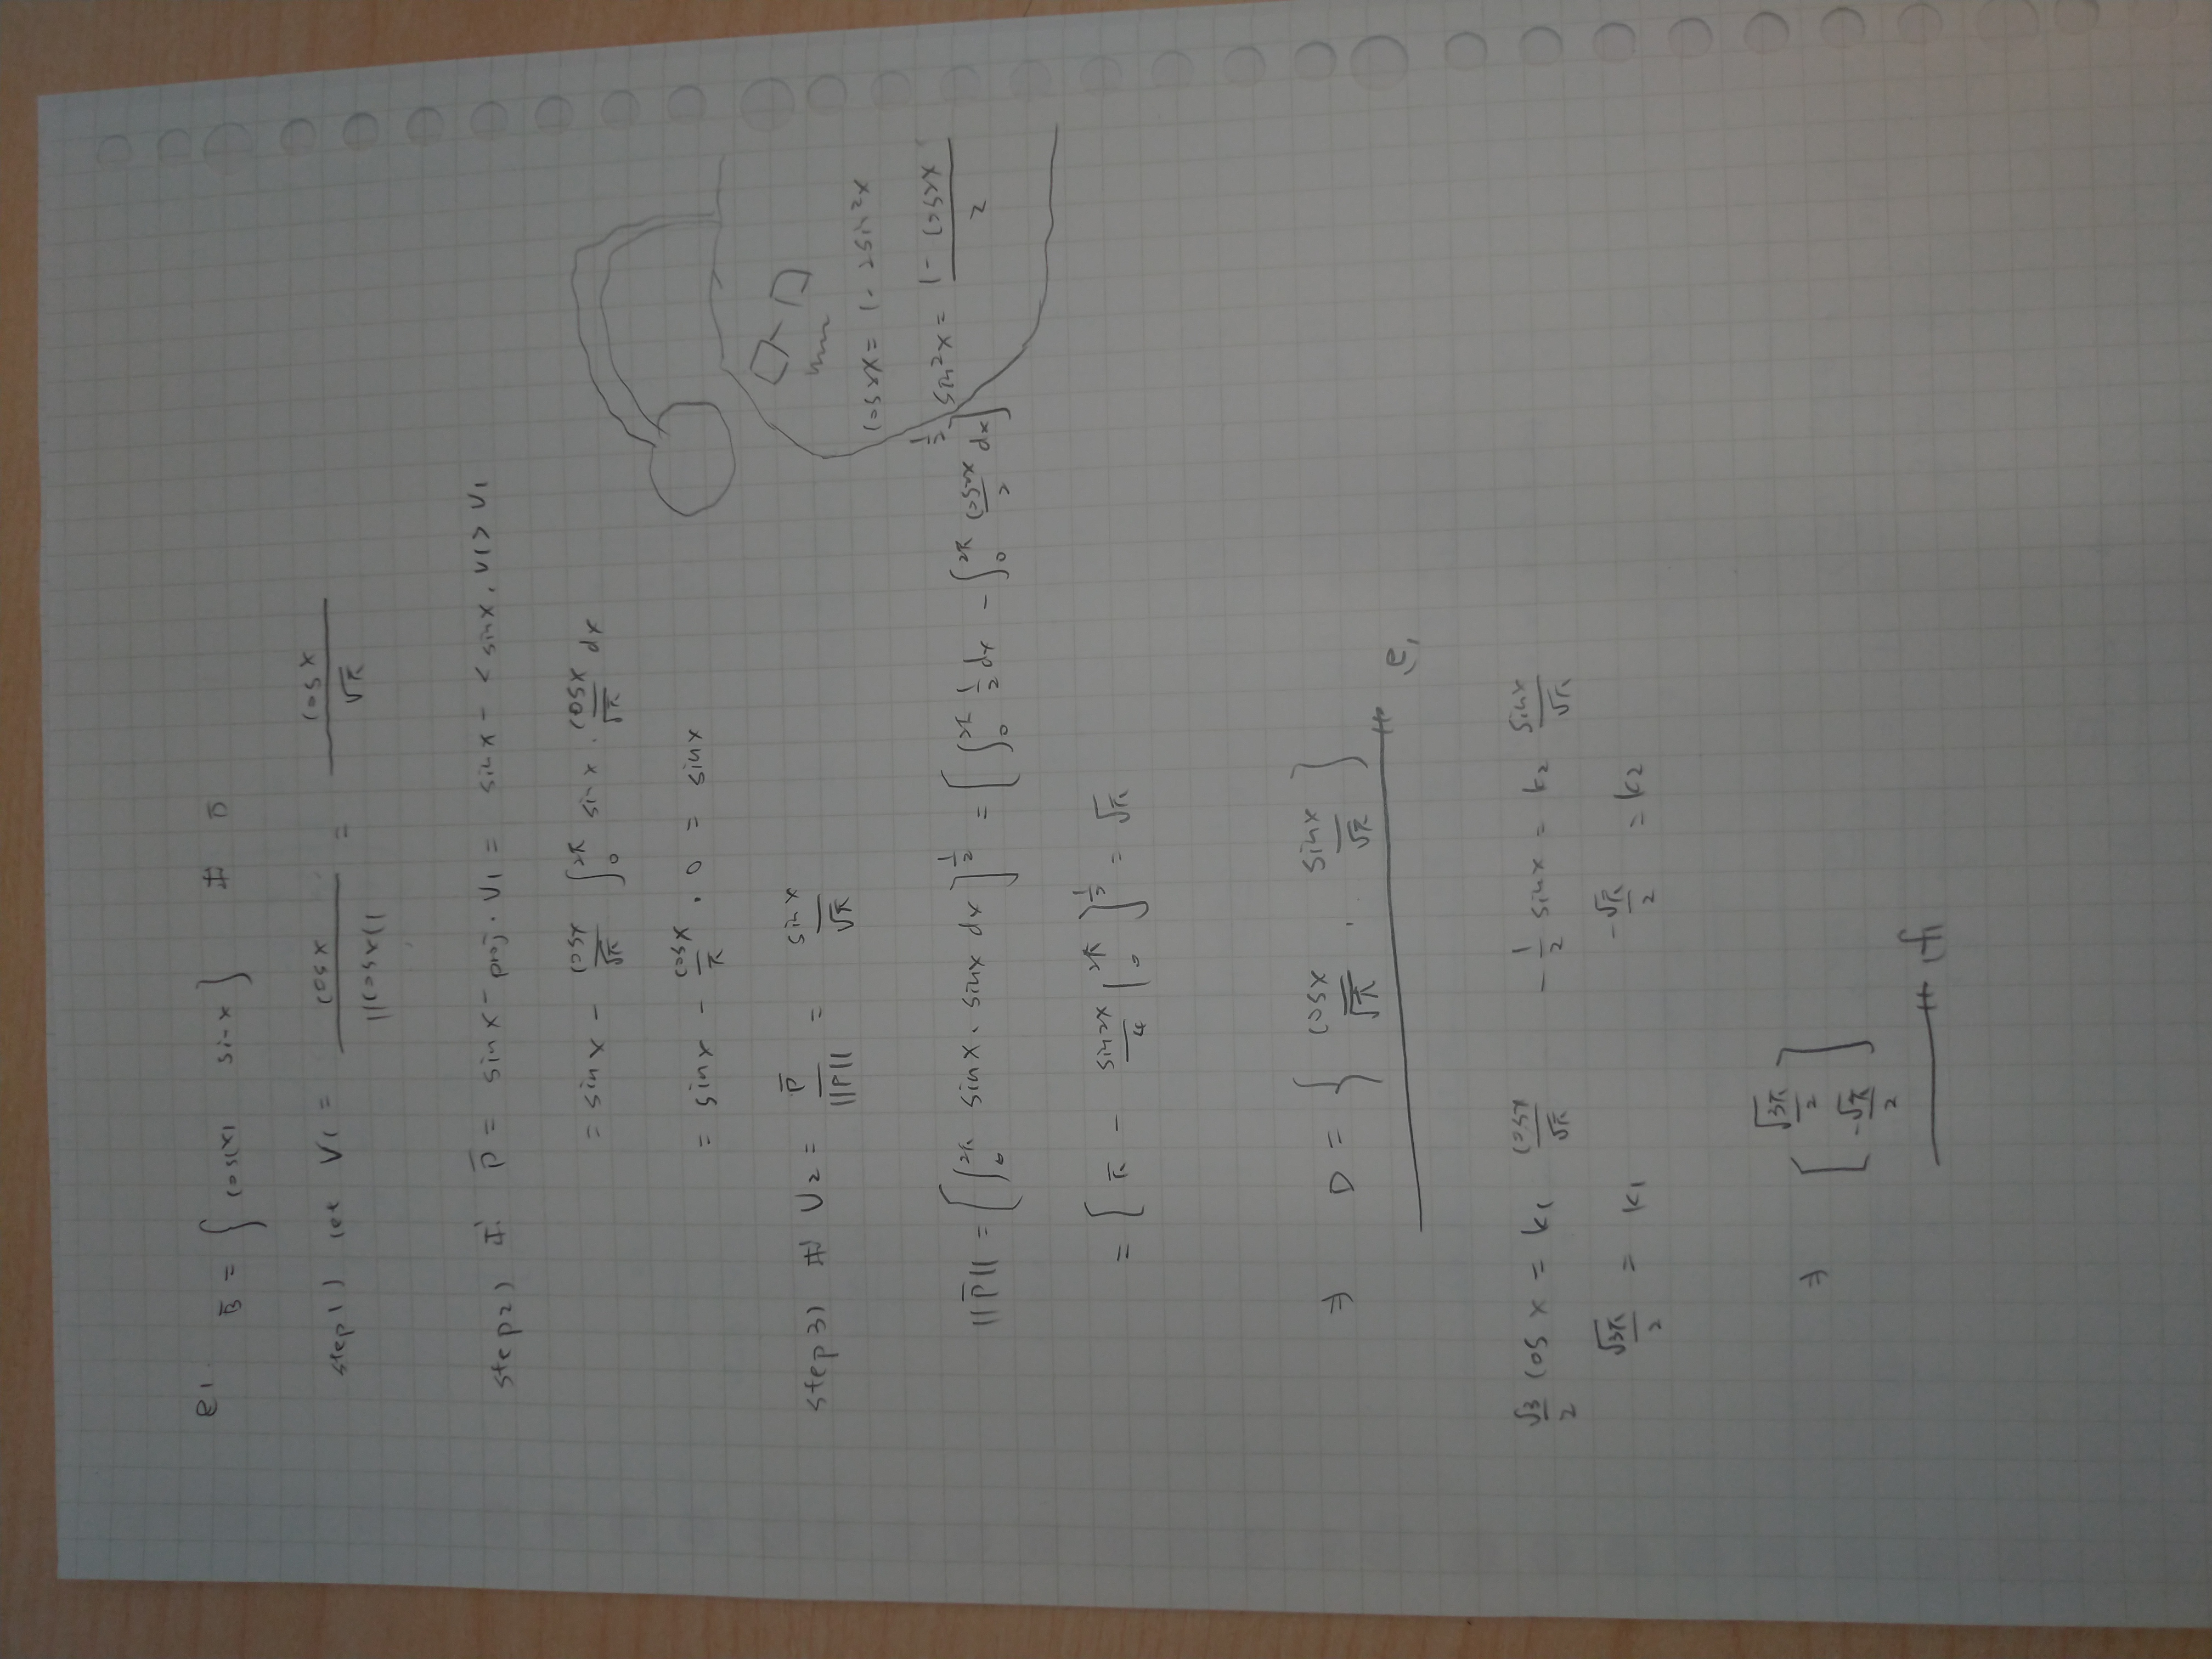 e).
B̄ = { cos(x) sinx } 求 D
step1) let V1 = cosx / ||cosx|| = cosx / √π
step2) 求 P̄ = sinx - proj. V1 = sinx - < sinx, V1> V1
= sinx - cosx/√π ∫₀^2π sinx · cosx/√π dx
= sinx - cosx/π · 0 = sinx
step3) 求 V2 = P̄ / ||P|| = sinx / √π
cos2x = 1 - 2sin²x
sin²x = (1 - cos2x) / 2
||P̄|| = [ ∫₀^2π sinx · sinx dx ]^1/2 = [ ∫₀^2π 1/2 dx - ∫₀^2π cos2x/2 dx ]^1/2
= [ π - sin2x/4 |₀^2π ]^1/2 = √π
⇒ D = { cosx/√π , sinx/√π }
(e)
√3/2 cos x = k1 cosx/√π - 1/2 sinx = k2 sinx/√π
√3π/2 = k1 -√π/2 = k2
⇒ [ √3π/2
-√π/2 ]
(f)